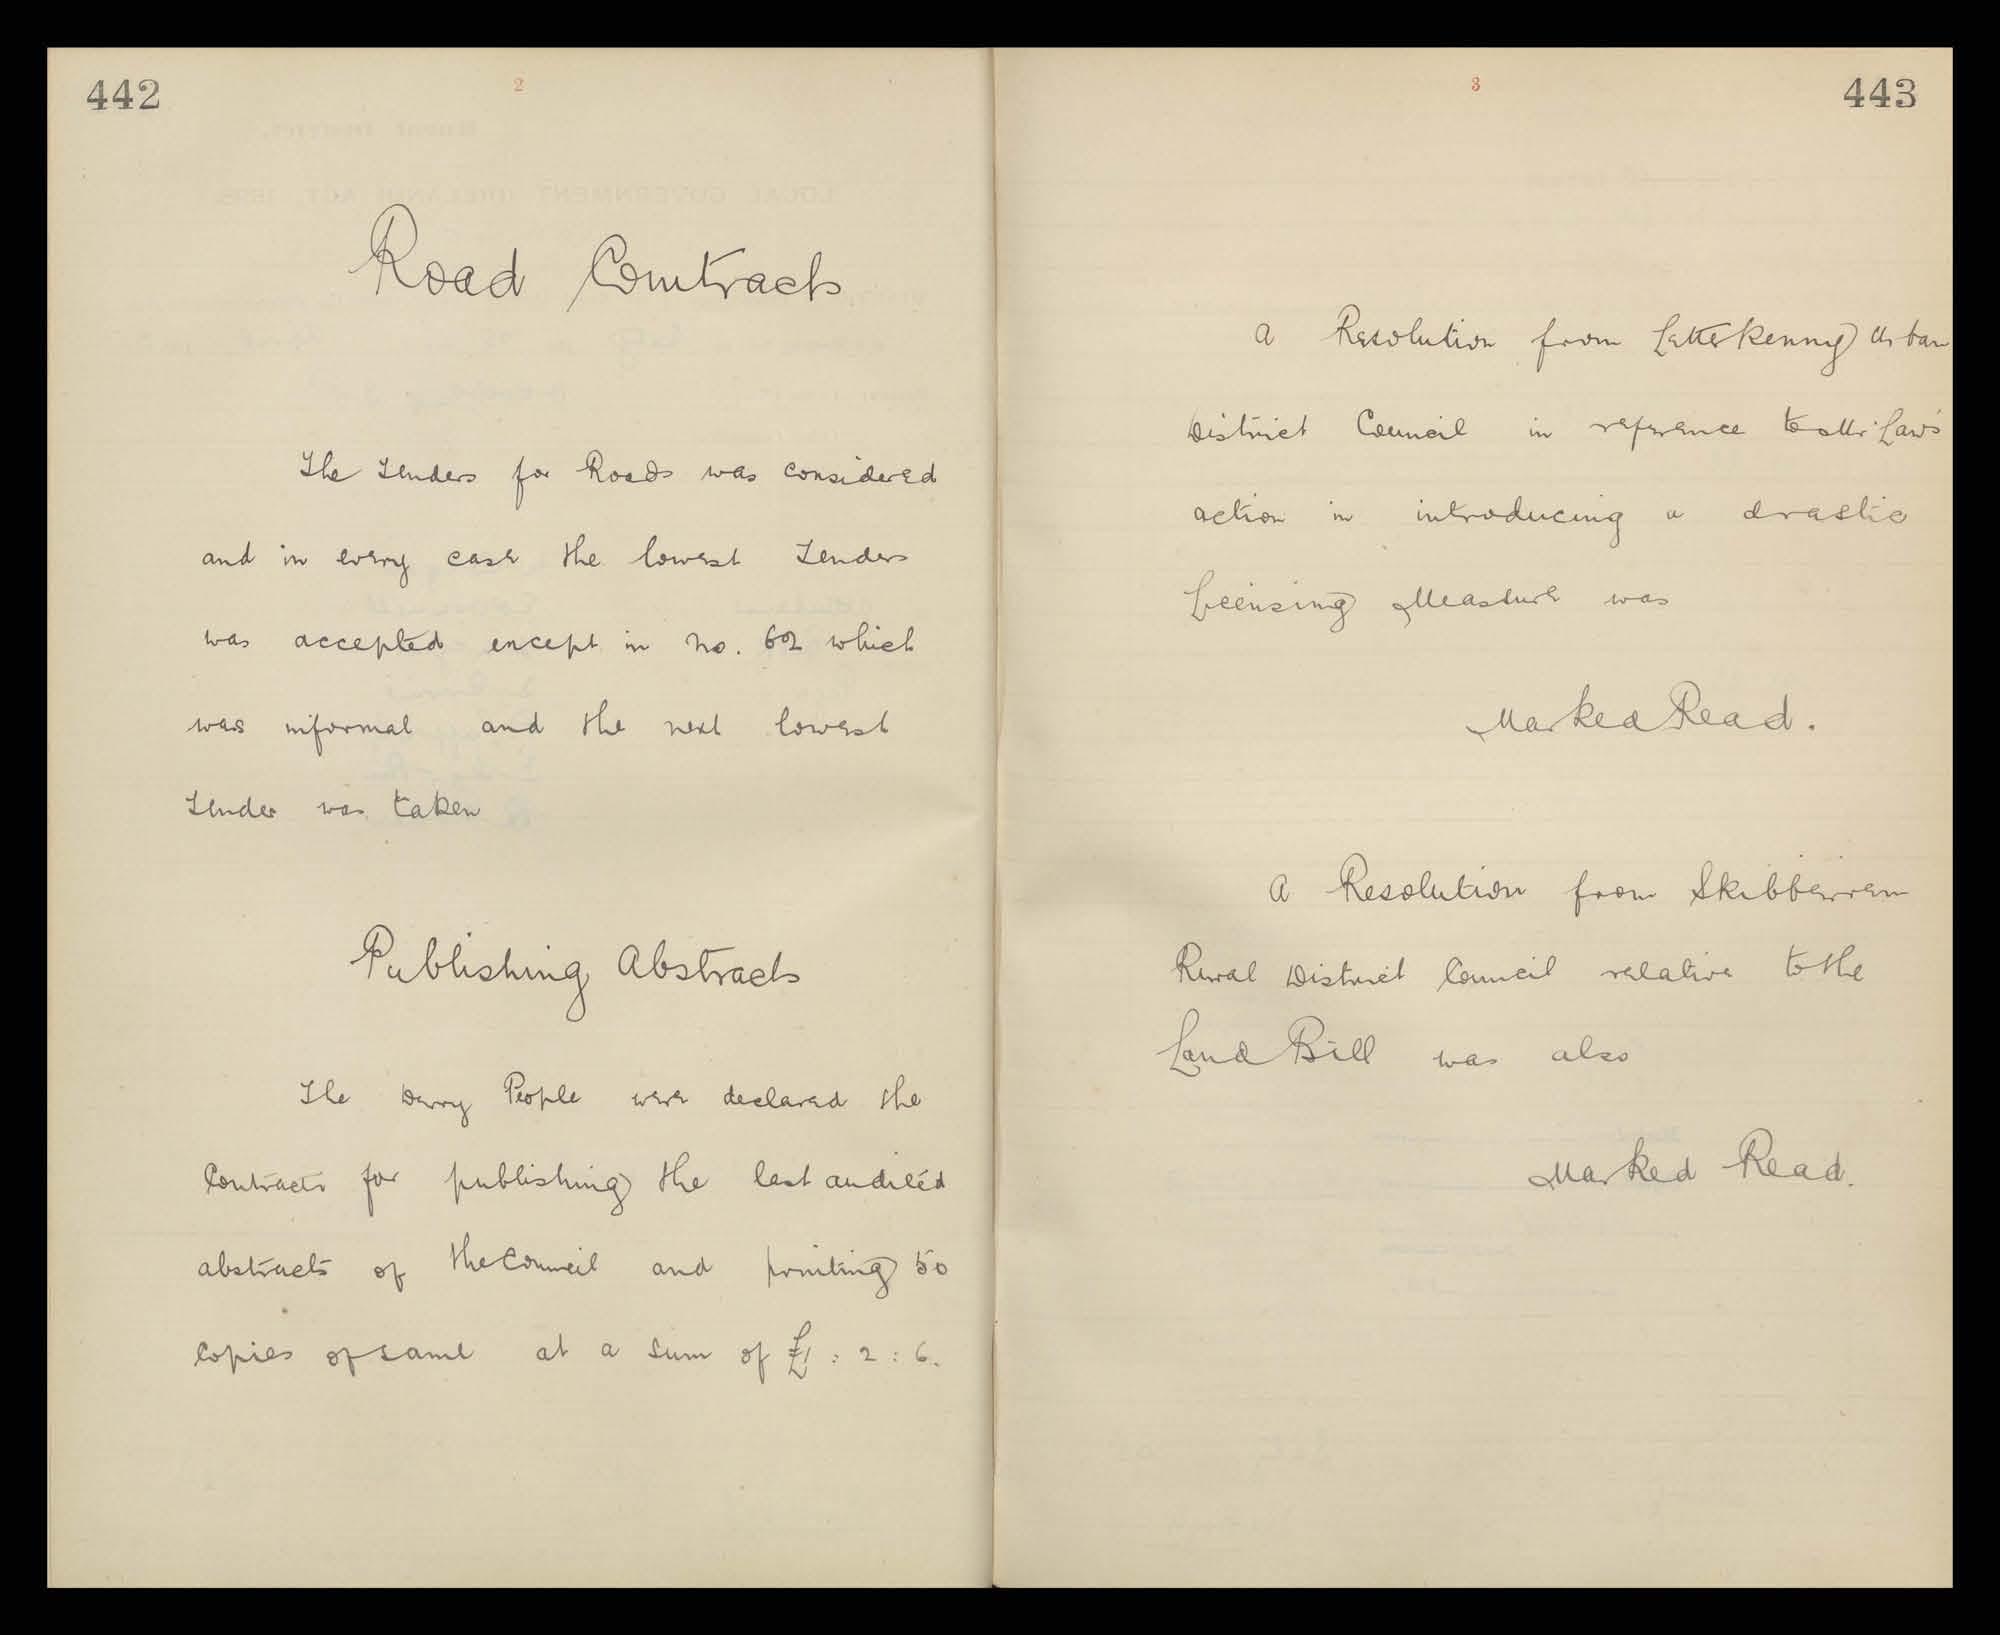 442
2
Road Contracts
The Tenders for Roads was considered
and in every case the lowest Tenders
was accepted except in No. 62 which
was informal and the next lowest
Tender was taken
Publishing Abstracts
The Derry People were declared the
Contractor for publishing the last audited
abstracts of the Council and printing 50
Copies of same at a sum of £1 : 2 : 6.
3
443
A Resolution from Letterkenny Urban
District Council in reference to Mr. Law's
action in introducing a drastic
Licensing Measure was
Marked Read.
A Resolution from Skibberreen
Rural District Council relative to the
Land Bill was also
Marked Read.